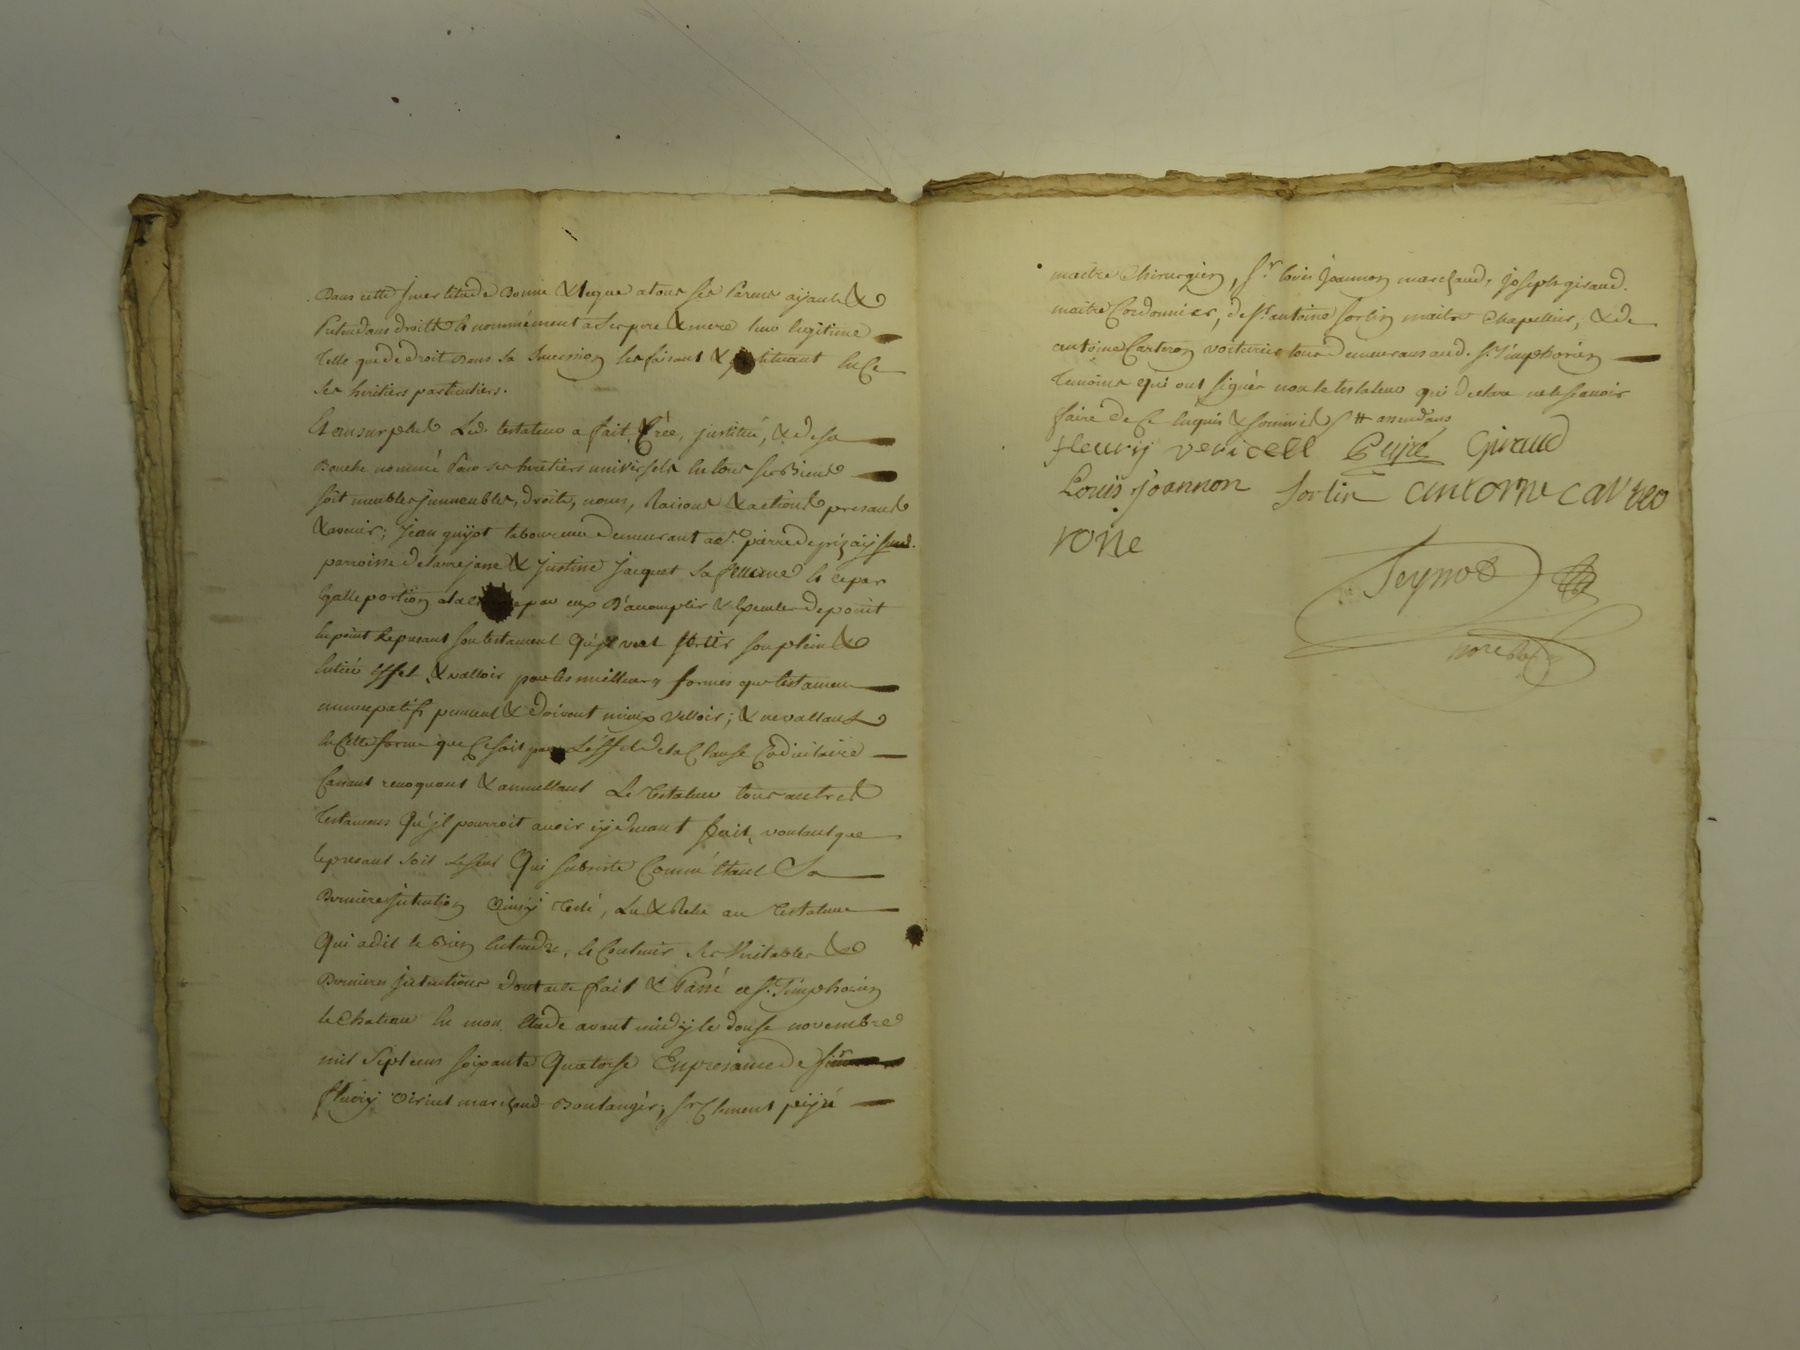 Dans cette Incertitude Donne & legue a tous ses Parens ayants &
Pretendans droits & nommément a ses pere & mere leur legitime
telle que de droit dans sa Succession les faisant & instituant en Ce
ses heritiers particuliers.
Et au surplus Led. testateur a fait, Créé, justitué, & de sa
Bouche nommé Pour ses heritiers universels en tous ses Biens
soit meubles jmmeubles, droits, noms, Raisons & actions presants
& avenir; Jean guyot laboureur demeurant a St. pierre
parroisse de larrejasse & justine jacquet sa femme & ce par
Egalle portion a la par eux D'accomplir & Executer de point
en point Le presant son testament qu'jl veut sortir son plein &
Entier Effet, & valloir pour les meilleurs formes que testament
nuncupatifs peuvent & doivent mieux valloir; & ne vallant
en Cette forme que Ce soit par L'éffet de la Clause Codicilaire
Cassant revoquant & annullant Le testateur tous autres
testamens Qu'jl pourroit avoir cy devant fait, voulant que
le presant soit Le seul Qui subsiste Comme Etant Sa
Derniere jntention Ainsy testé, Lu & Relu au testateur
Qui a dit le Bien Entendre, & Contenir ses Veritables &
Dernieres jntentions dont acte fait & Passé a St. Simphorien
le Chateau En mon Etude avant midy le douse novembre
mil Sept cens soixante Quatorse En presance de
fleury marchand Boulanger; Sr. Clement peijré
maitre Chirurgien, Sr. louis Joannon marchand, joseph giraud
maitre Cordonnier, de Sr. antoine sortin maitre Chapellier, & de
antoine Carteron voiturier tous demeurans aud. St. Simphorien
temoins qui ont signés non le testateur qui declare ne le sçavoir
faire de Ce Enquis & sommé
fleury vericell Peijré Giraud
Louis joannon Sortin antoine carte
rone
Peynot
nore